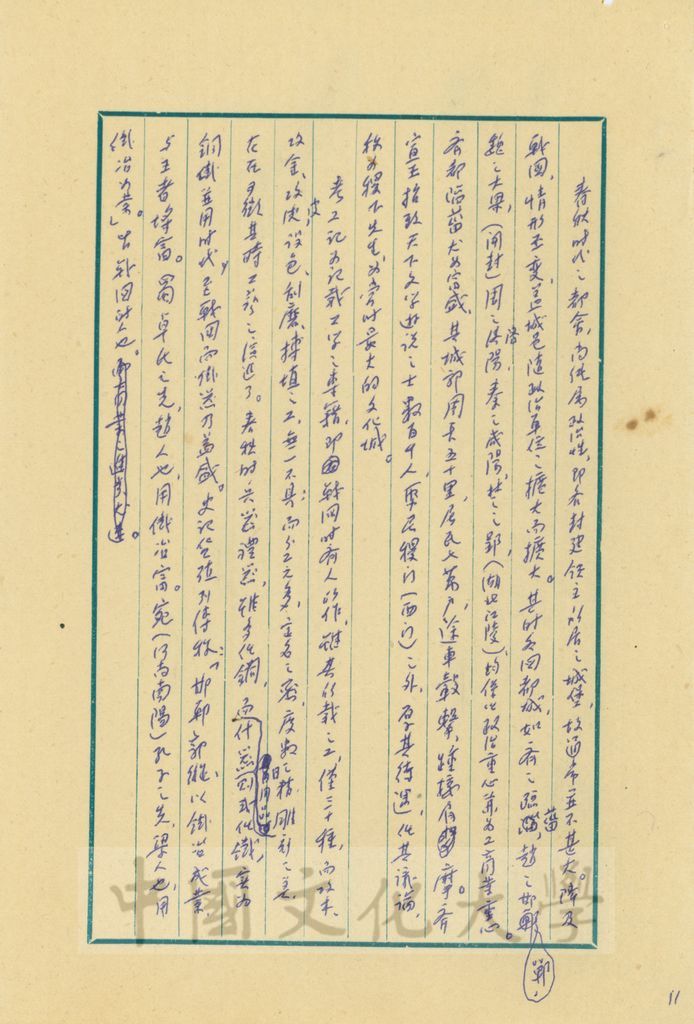 春秋時代之都會，尚純屬政治性，即各封建領主所居之城堡，故通常並不甚大。降及
戰國，情形丕變，蓋城邑隨政治單位之擴大而擴大。其時各國都城，如齊之臨菑，趙之邯鄲，
魏之大梁，(開封)周之洛陽，秦之咸陽，楚之郢，(湖北江陵)均僅以政治重心兼為工商業重心。
齊都臨菑尤為富盛，其城郭周長五十里，居民七萬戶，途車轂擊，踵接肩摩。齊
宣王招致天下文學遊說之士數百千人，聚居稷門(西門)之外，厚其待遇，任其議論，
號為稷下先生，為當時最大的文化城。
考工記為記載工學之專籍，即戰國時齊人所作，雖其所載之工，僅三十種，而攻木、
攻金、攻皮、設色、刮磨、摶埴之工，無一不具；而分工之多，定名之密，度數之精，雕刻之美，
在在可徵其時工藝之演進了。春秋時兵器禮器，雖多化銅，而什器則或化鐵，實為
銅鐵並用時代，至戰國而鐵器乃益盛。史記貨殖列傳稱：「邯鄲郭縱，以鐵冶成業，
與王者埒富。蜀卓氏之先，趙人也，用鐵冶富。宛(河南南陽)孔氏之先，梁人也，用
鐵冶為業。」皆戰國時人也。
11
中國文化大學